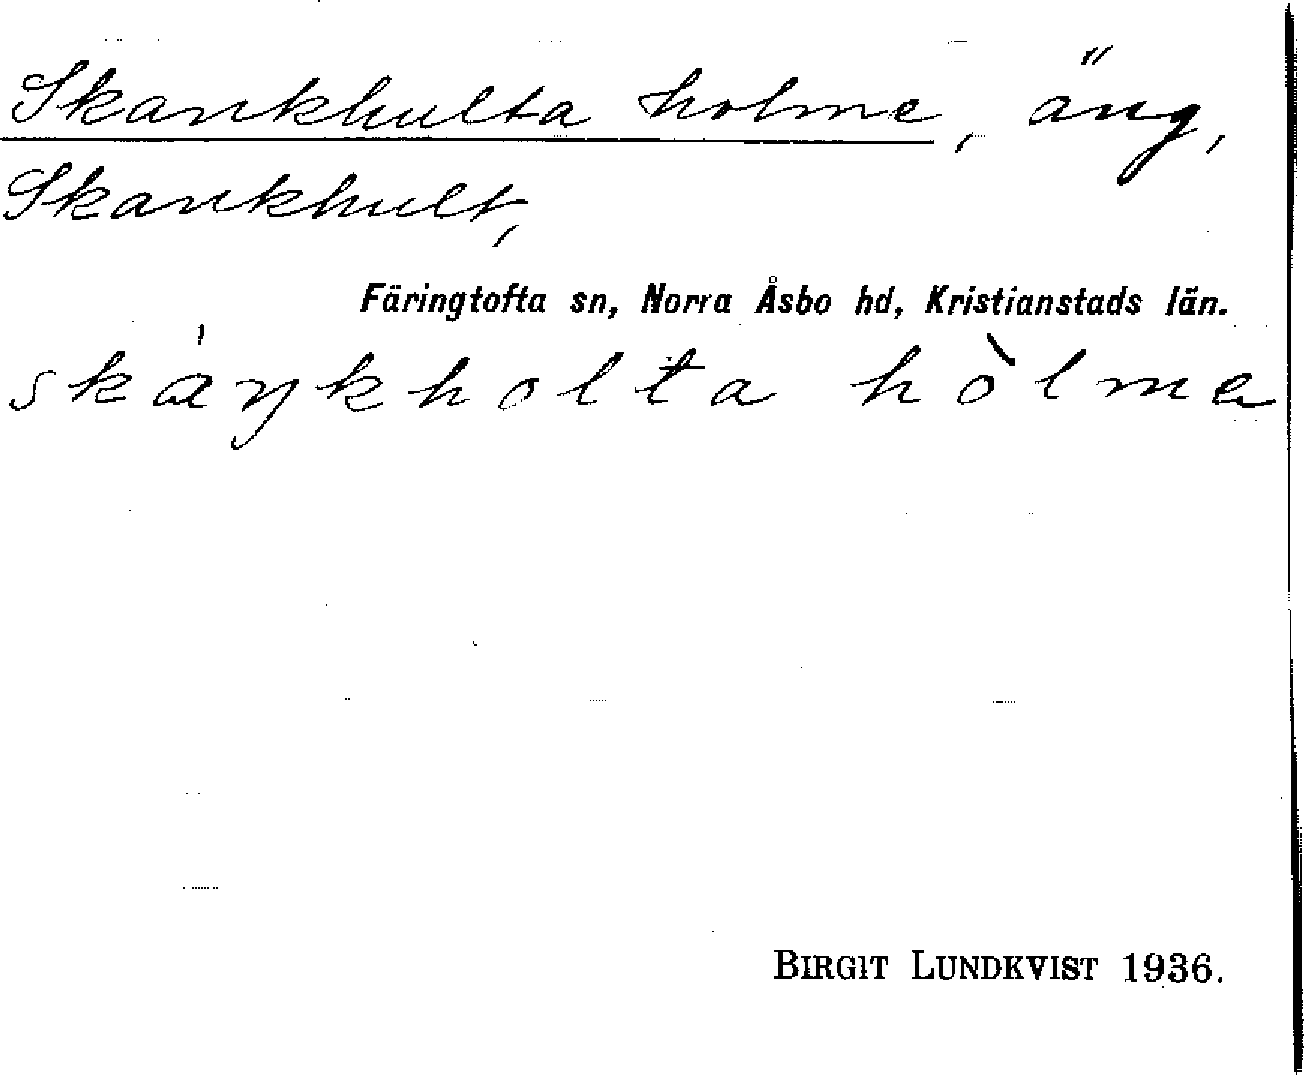 Skankhulta holme, äng,
Skankhult,
Färingtofta sn, Norra Åsbo hd, Kristianstads län.
skáŋkholta hòlmə
BIRGIT LUNDKVIST 1936.